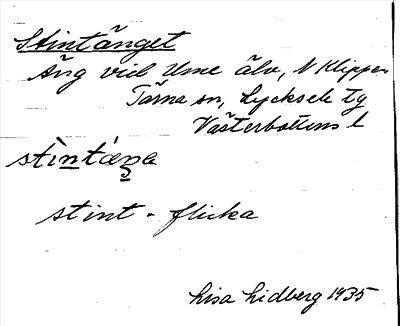 Stintänget
Äng vid Ume älv, N Klippen
Tärna sn, Lycksele tg
Västerbottens l
stìntáŋa
stint - flicka
Lisa Lidberg 1935